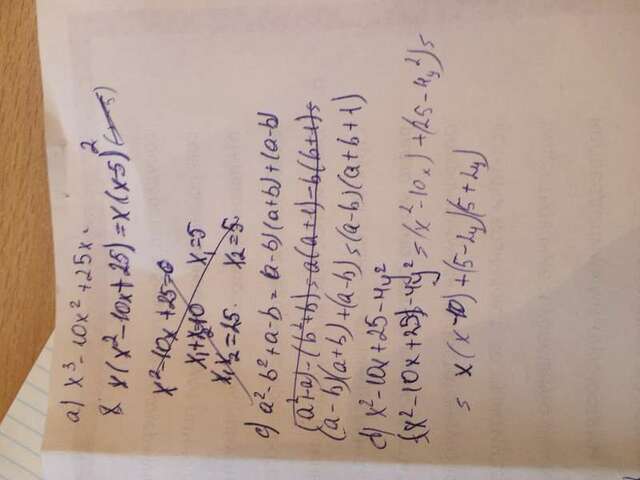 a) x³-10x²+25x=
x(x²-10x+25)=x(x-5)²
x²-10x+25=0
x₁+x₂=10 x₁=5
x₁x₂=25. x₂=5.
c) a²-b²+a-b=(a-b)(a+b)+(a-b)
(a²+a)-(b²+b)=a(a+1)=b(b+1)=
(a-b)(a+b)+(a-b)=(a-b)(a+b+1)
b) x²-10x+25-4y²
(x²-10x+25)-4y²=(x²-10x)+(25-4y²)=
= x(x-10)+(5-2y)(5+2y)